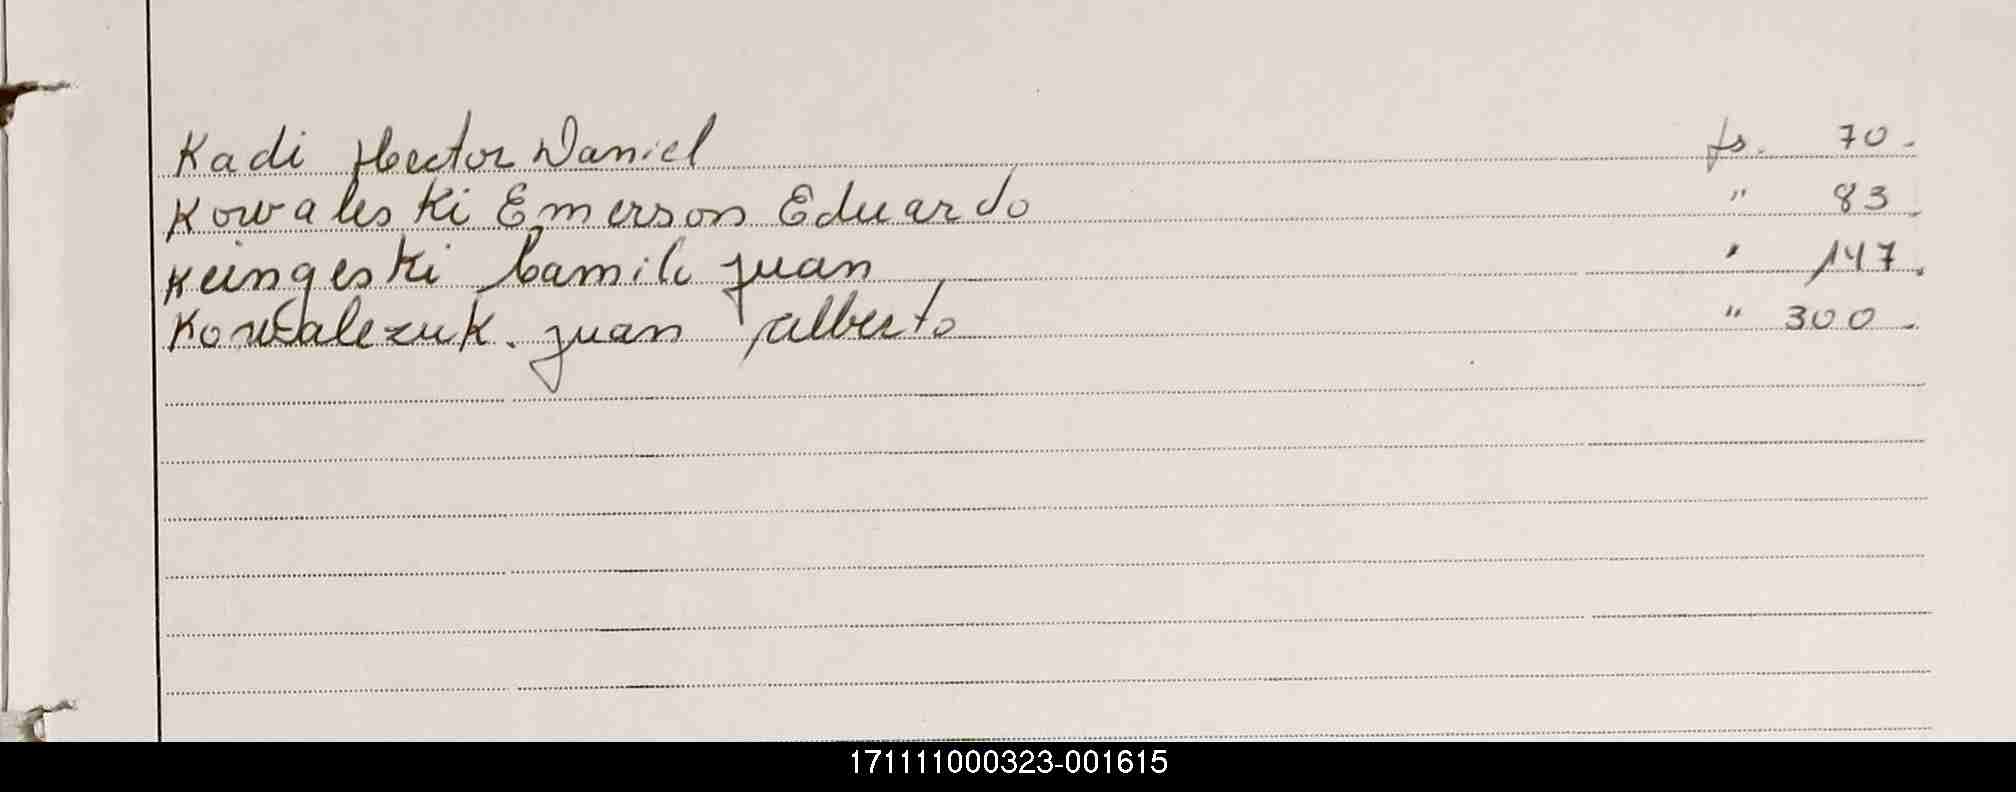 Kadi Hector Daniel fs. 70.
Kowaleski Emerson Eduardo " 83.
Keingeski Camilo Juan " 147.
Kowalezuk. Juan Alberto " 300.
171111000323-001615